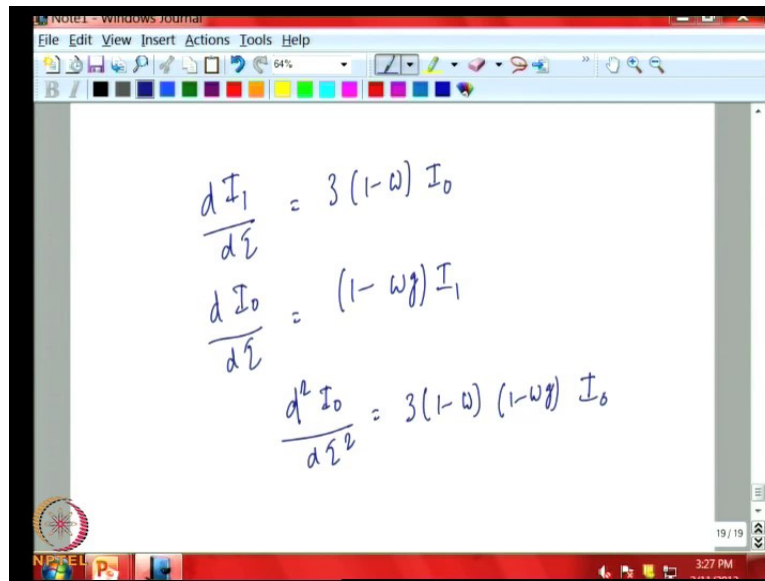 Note1 - Windows Journal
File Edit View Insert Actions Tools Help
64%
B I
dI₁/dτ = 3(1-ω) I₀
dI₀/dτ = (1-ωg) I₁
d²I₀/dτ² = 3(1-ω) (1-ωg) I₀
19 / 19
NPTEL
3:27 PM